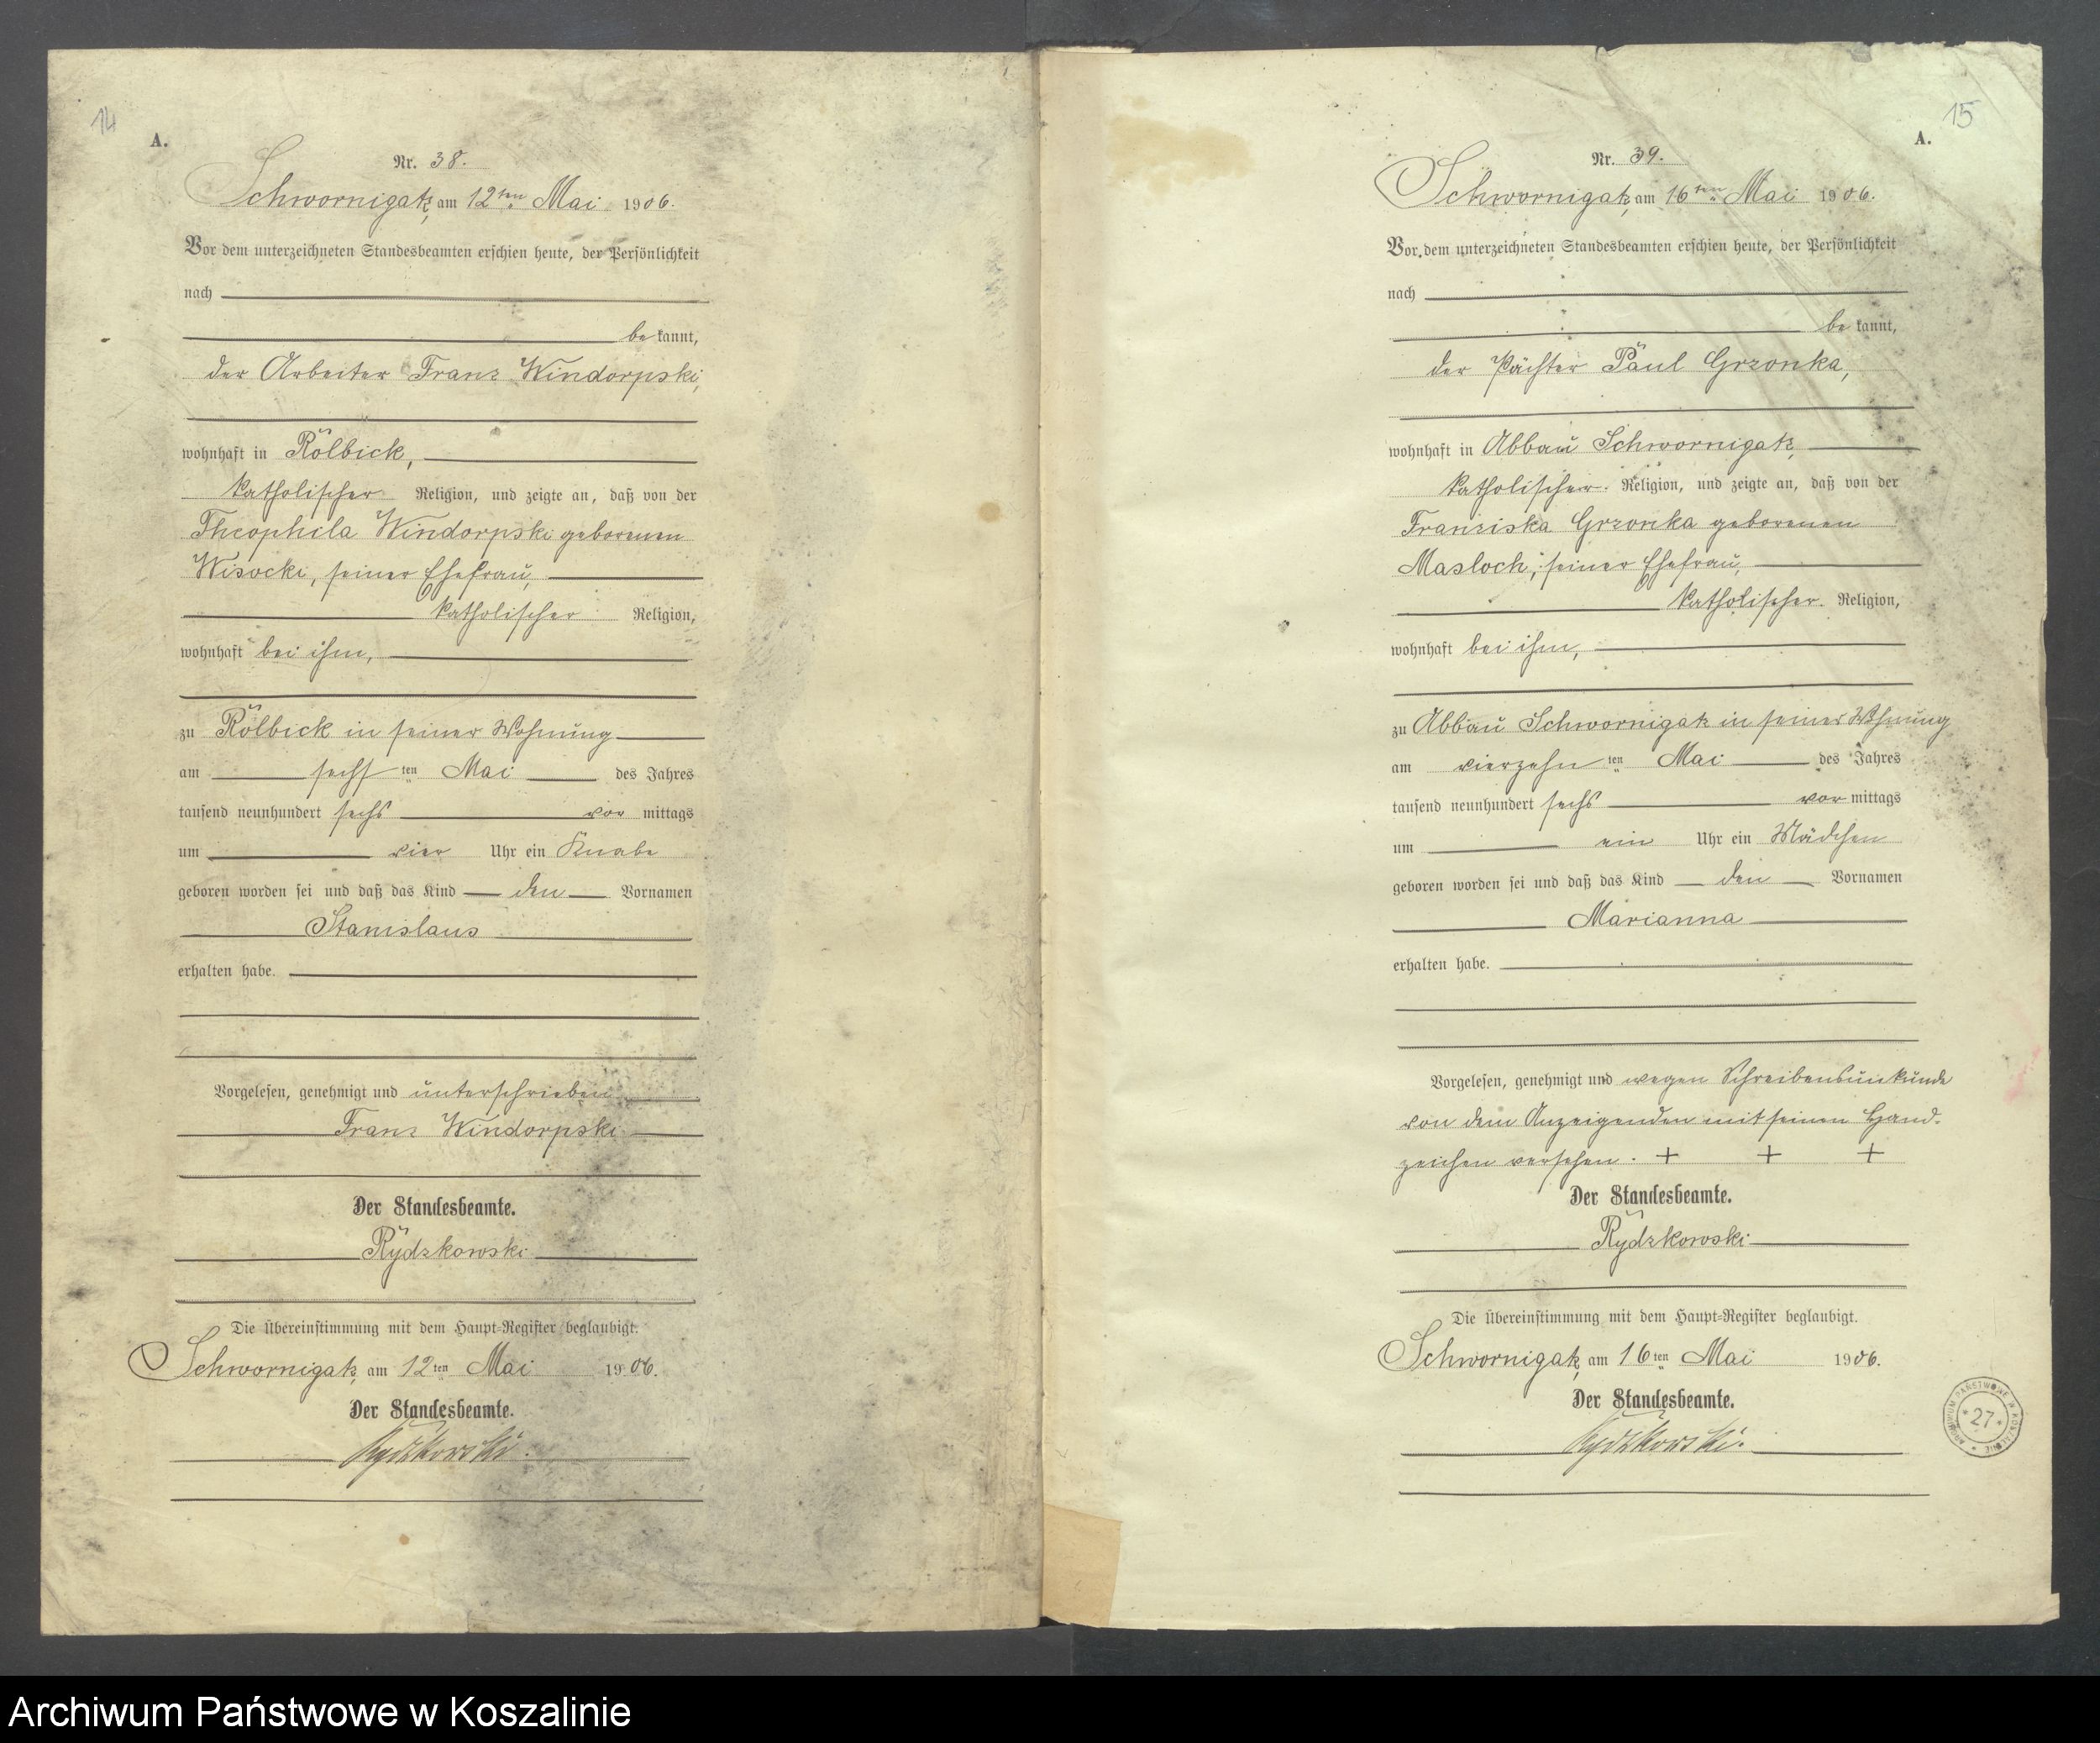 14
A.
Nr. 38.
Schwornigatz, am 12ten Mai 1906.
Vor dem unterzeichneten Standesbeamten erschien heute, der Persönlichkeit
nach
be kannt,
der Arbeiter Franz Windorpski,
wohnhaft in Rölbick,
katholischer Religion, und zeigte an, daß von der
Theophila Windorpski geborenen
Wisocki, seiner Ehefrau,
katholischer Religion,
wohnhaft bei ihm,
zu Rölbick in seiner Wohnung
am sechs ten Mai des Jahres
tausend neunhundert sechs vor mittags
um vier Uhr ein Knabe
geboren worden sei und daß das Kind den Vornamen
Stanislaus
erhalten habe.
Vorgelesen, genehmigt und unterschrieben
Franz Windorpski
Der Standesbeamte.
Rydzkowski
Die Übereinstimmung mit dem Haupt-Register beglaubigt.
Schwornigatz, am 12ten Mai 1906.
Der Standesbeamte.
Rydzkowski.
15
A.
Nr. 39.
Schwornigatz, am 16ten Mai 1906.
Vor dem unterzeichneten Standesbeamten erschien heute, der Persönlichkeit
nach
be kannt,
der Pächter Paul Grzonka,
wohnhaft in Abbau Schwornigatz,
katholischer Religion, und zeigte an, daß von der
Franziska Grzonka geborenen
Masloch, seiner Ehefrau,
katholischer Religion,
wohnhaft bei ihm,
zu Abbau Schwornigatz in seiner Wohnung
am vierzehn ten Mai des Jahres
tausend neunhundert sechs vor mittags
um ein Uhr ein Mädchen
geboren worden sei und daß das Kind den Vornamen
Marianna
erhalten habe.
Vorgelesen, genehmigt und wegen Schreibensunkunde
von dem Anzeigenden mit seinen Hand-
zeichen versehen. + + +
Der Standesbeamte.
Rydzkowski
Die Übereinstimmung mit dem Haupt-Register beglaubigt.
Schwornigatz, am 16ten Mai 1906.
Der Standesbeamte.
Rydzkowski.
ARCHIWUM PAŃSTWOWE W KOSZALINIE
* 27 *
Archiwum Państwowe w Koszalinie